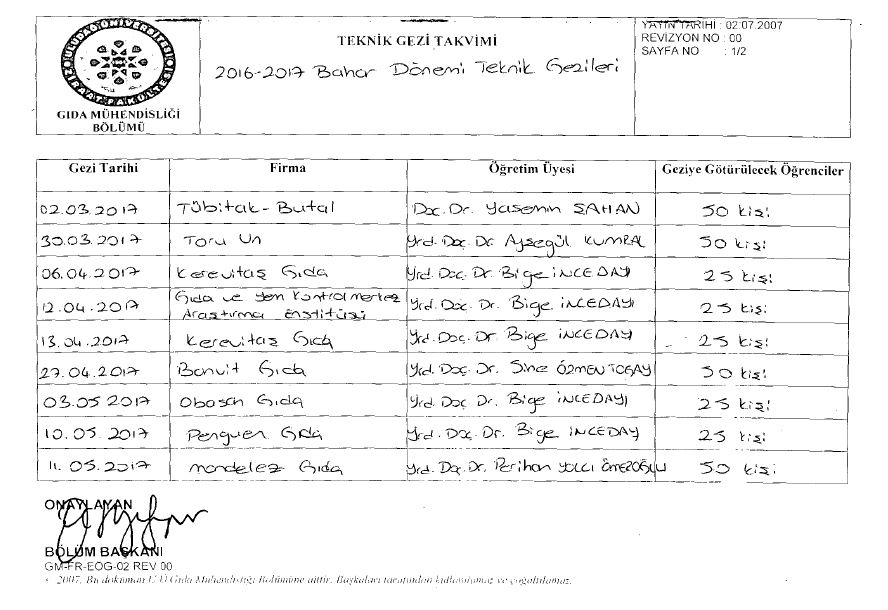 GIDA MÜHENDİSLİĞİ
BÖLÜMÜ
TEKNİK GEZİ TAKVİMİ
2016-2017 Bahar Dönemi Teknik Gezileri
YAYIN TARİHİ : 02.07.2007
REVİZYON NO : 00
SAYFA NO : 1/2
Gezi Tarihi Firma Öğretim Üyesi Geziye Götürülecek Öğrenciler
02.03.2017 Tübitak-Butal Doç.Dr. Yasemin ŞAHAN 50 kişi
30.03.2017 Toru Un Yrd.Doç.Dr. Ayşegül KUMRAL 50 kişi
06.04.2017 Kerevitaş Gıda Yrd.Doç.Dr. Bige İNCEDAYI 25 kişi
12.04.2017 Gıda ve Yem Kontrol merkez Araştırma Enstitüsü Yrd.Doç.Dr. Bige İNCEDAYI 25 kişi
13.04.2017 Kerevitaş Gıda Yrd.Doç.Dr. Bige İNCEDAYI 25 kişi
27.04.2017 Banvit Gıda Yrd.Doç.Dr. Sine ÖZMEN TOGAY 50 kişi
03.05.2017 Obasan Gıda Yrd.Doç.Dr. Bige İNCEDAYI 25 kişi
10.05.2017 Penguen Gıda Yrd.Doç.Dr. Bige İNCEDAYI 25 kişi
11.05.2017 mondelez Gıda Yrd.Doç.Dr. Perihan YOLCI ÖMEROĞLU 50 kişi
ONAYLAYAN
BÖLÜM BAŞKANI
GM-FR-EOG-02 REV 00
2007, Bu doküman U.Ü Gıda Mühendisliği Bölümüne aittir. Başkaları tarafından kullanılamaz ve çoğaltılamaz.